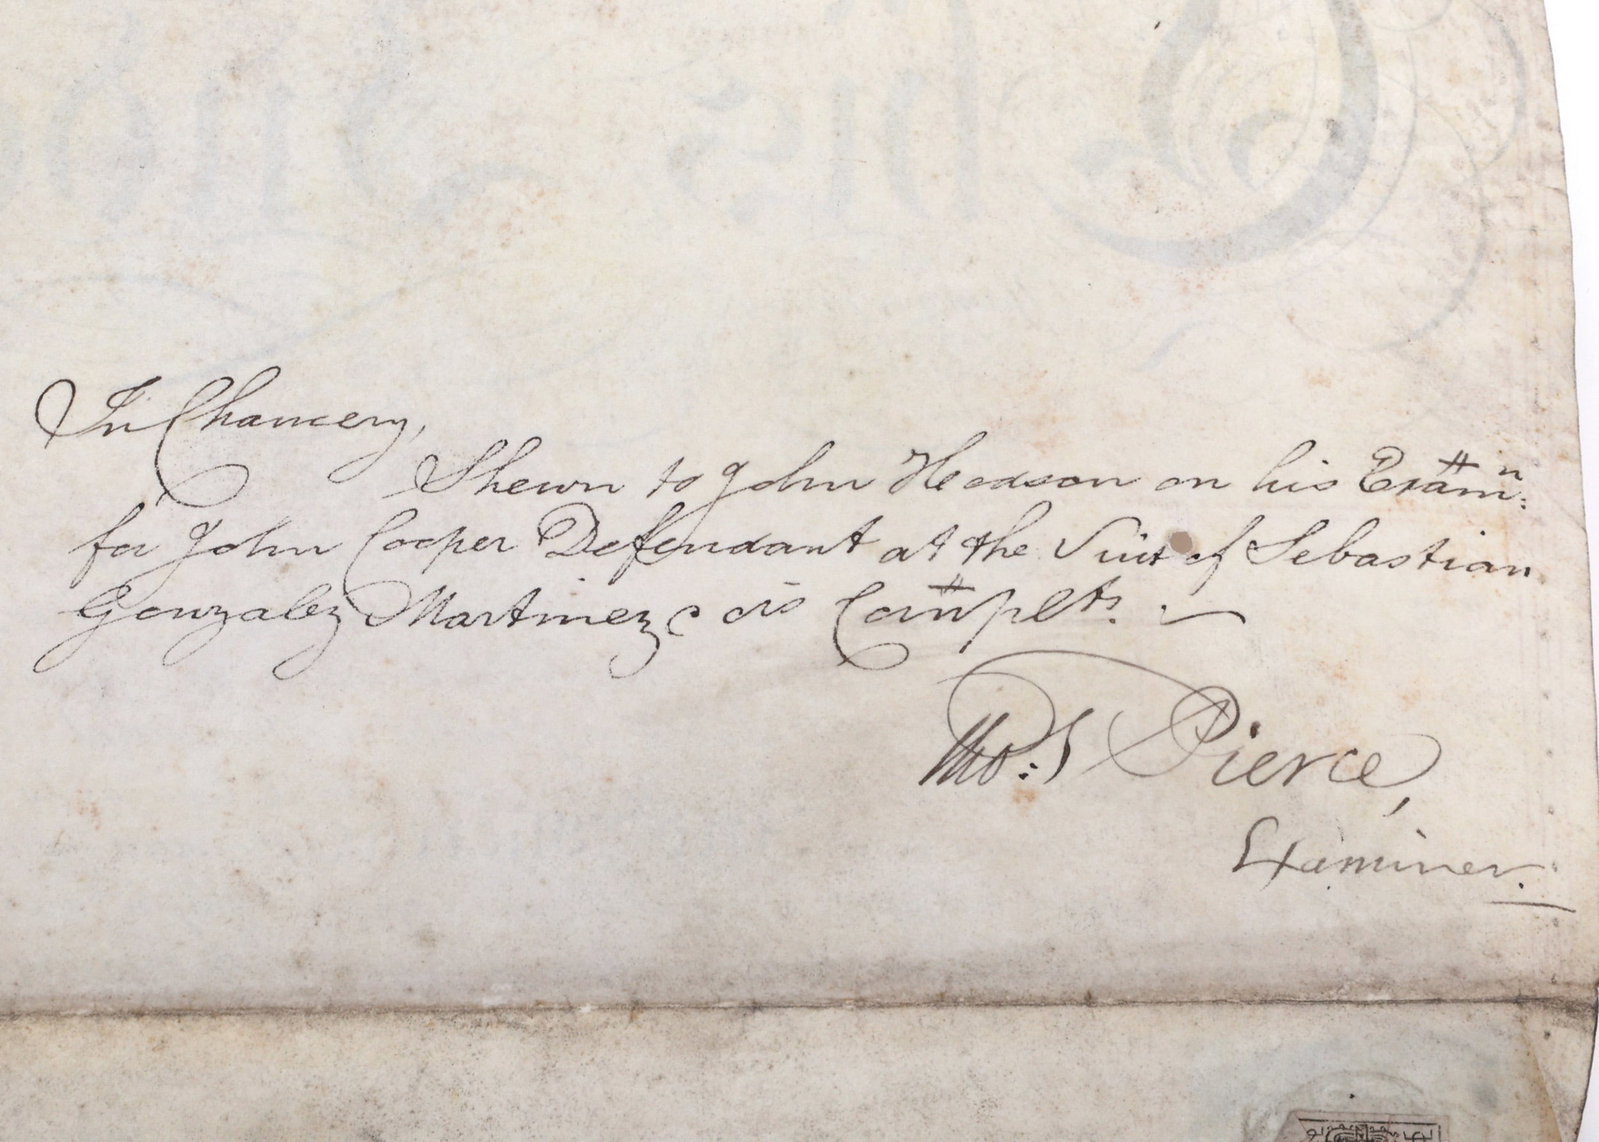 In Chancery,
Shewn to John Hodson on his Examn:
for John Cooper Defendant at the Suit of Sebastian
Gonzalez Martinez & ors Complts.
Thos: Pierce,
Examiner.